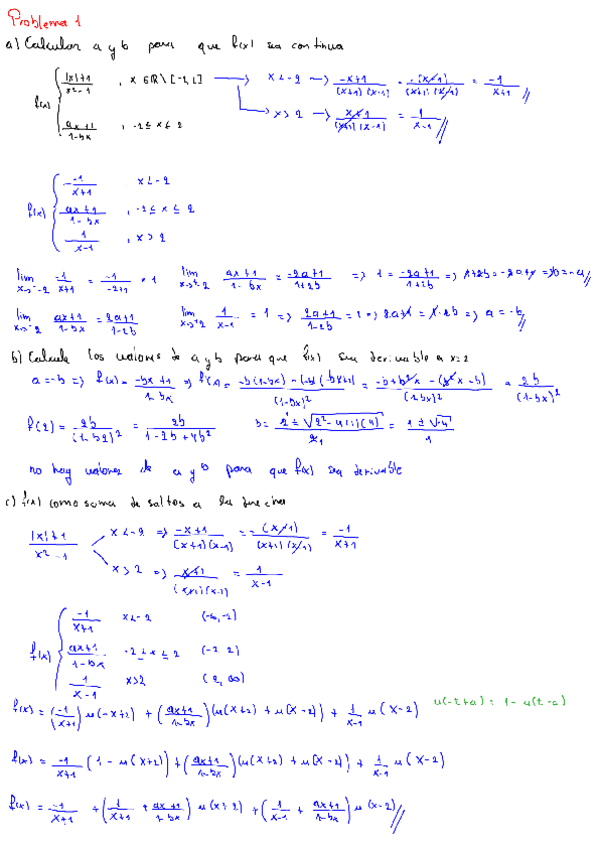 Problema 1
a) Calcular a y b para que f(x) sea continua
f(x) { |x|+1 / x²-1 , x ∈ ℝ \ [-2,2] → x<-2 → -x+1 / (x+1)(x-1) = -(x-1) / (x+1)(x-1) = -1 / x+1 //
→ x>2 → x+1 / (x+1)(x-1) = 1 / x-1 //
ax+1 / 1-bx , -2≤x≤2
f(x) { -1 / x+1 x<-2
ax+1 / 1-bx , -2≤x≤2
1 / x-1 , x>2
lim x→-2 -1 / x+1 = -1 / -2+1 = 1 lim ax+1 / 1-bx = -2a+1 / 1+2b => 1 = -2a+1 / 1+2b => 1+2b = -2a+1 => b=-a //
lim ax+1 / 1-bx = 2a+1 / 1-2b lim 1 / x-1 = 1 => 2a+1 / 1-2b = 1 => 2a+1 = 1-2b => a=-b //
b) Calcule los valores de a y b para que f(x) sea derivable a x=2
a=-b => f(x) = -bx+1 / 1-bx
= 2b / (1-bx)²
f(2) = 2b / (1-b2)² = 2b / 1-2b+4b²
no hay valores de a y b para que f(x) sea derivable
c) f(x) como suma de saltos a la derecha
|x|+1 / x²-1 x<-2 => -x+1 / (x+1)(x-1) = -(x-1) / (x+1)(x-1) = -1 / x+1
x>2 => x+1 / (x+1)(x-1) = 1 / x-1
f(x) { -1 / x+1 x<-2 (-∞,-2)
ax+1 / 1-bx -2≤x≤2 (-2 2)
1 / x-1 x>2 (2,∞)
f(x) = (-1 / x+1) u(-x+2) + (ax+1 / 1-bx)(u(x+2) + u(x-2)) + 1 / x-1 u(x-2) u(-t+a) = 1-u(t-a)
f(x) = -1 / x+1 (1-u(x+2)) + (ax+1 / 1-bx)(u(x+2) + u(x-2)) + 1 / x-1 u(x-2)
f(x) = -1 / x+1 + (1 / x+1 + ax+1 / 1-bx) u(x+2) + (1 / x-1 + ax+1 / 1-bx) u(x-2) //